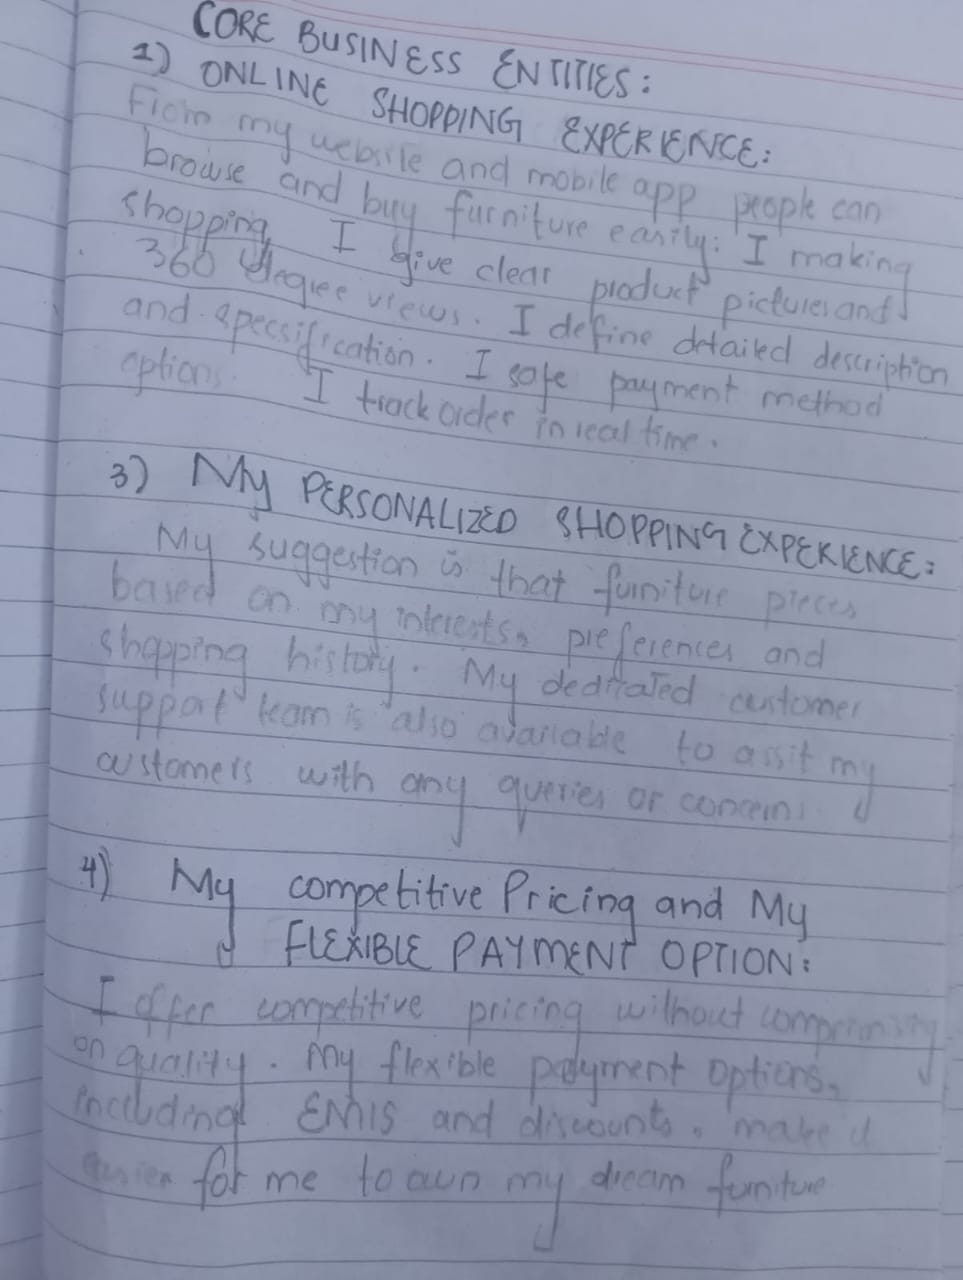 CORE BUSINESS ENTITIES:
1) ONLINE SHOPPING EXPERIENCE:
From my website and mobile app people can
browse and buy furniture easily: I making
shopping I give clear product pictures and
360 degree views. I define detailed description
and specsification. I safe payment method
options I track order in real time.
3) My PERSONALIZED SHOPPING EXPERIENCE:
My suggestion is that furniture pieces
based on my interests, preferences and
shopping history. My dedicated customer
support team is also available to assit my
customers with any queries or concerns
4) My competitive Pricing and My
FLEXIBLE PAYMENT OPTION:
I offer competitive pricing without
on quality. My flexible payment options,
including EMIS and discounts, make it
easier for me to own my dream furniture